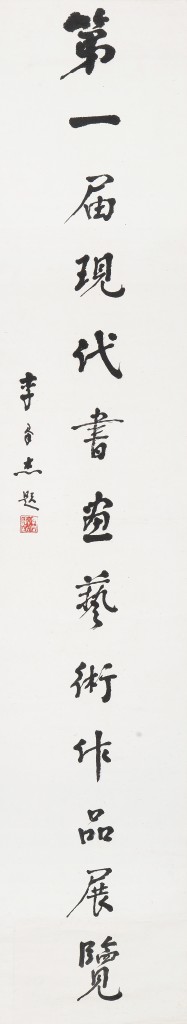 第一届現代書畫藝術作品展覽
李自杰題